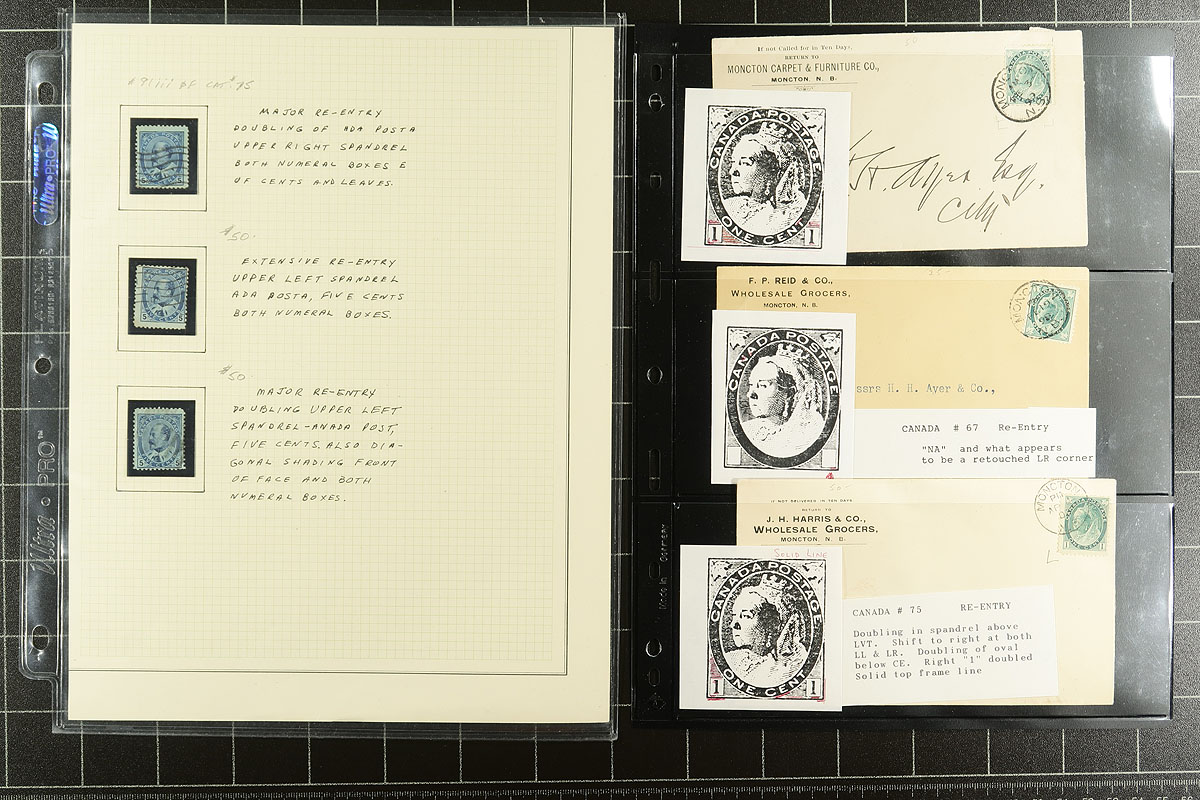 MAJOR RE-ENTRY
DOUBLING OF ADA POSTA
UPPER RIGHT SPANDREL
BOTH NUMERAL BOXES E
OF CENTS AND LEAVES.
$50.
EXTENSIVE RE-ENTRY
UPPER LEFT SPANDREL
ADA POSTA, FIVE CENTS
BOTH NUMERAL BOXES.
$50
MAJOR RE-ENTRY
DOUBLING UPPER LEFT
SPANDREL-ANADA POST,
FIVE CENTS. ALSO DIA-
GONAL SHADING FRONT
OF FACE AND BOTH
NUMERAL BOXES.
Ultra PRO
PLATINUM
Ultra • PRO™
If not Called for in Ten Days,
RETURN TO
MONCTON CARPET & FURNITURE CO.,
MONCTON, N. B.
H. Ayer Esq.
City
CANADA POSTAGE
1 ONE CENT 1
F. P. REID & CO.,
WHOLESALE GROCERS,
MONCTON, N. B.
MONCTON
ssrs H. H. Ayer & Co.,
CANADA POSTAGE
CANADA # 67 Re-Entry
"NA" and what appears
to be a retouched LR corner
IF NOT DELIVERED IN TEN DAYS
RETURN TO
J. H. HARRIS & CO.,
WHOLESALE GROCERS,
MONCTON, N. B.
MONCTON
SOLID LINE
CANADA POSTAGE
1 ONE CENT 1
CANADA # 75 RE-ENTRY
Doubling in spandrel above
LVT. Shift to right at both
LL & LR. Doubling of oval
below CE. Right "1" doubled
Solid top frame line
Made in Germany